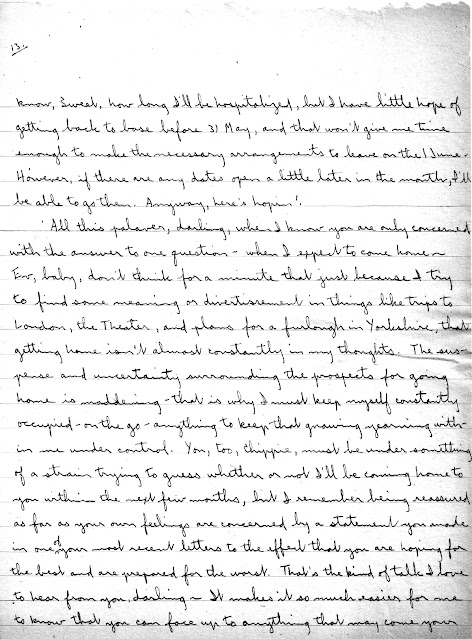 13.
know, Sweet, how long I'll be hospitalized, but I have little hope of
getting back to base before 31 May, and that won't give me time
enough to make the necessary arrangements to leave on the 1 June.
However, if there are any dates open a little later in the month, I'll
be able to go then. Anyway, here's hopin'!
All this palaver, darling, when I know you are only concerned
with the answer to one question - when I expect to come home ~
Ev, baby, don't think for a minute that just because I try
to find some meaning or divertissement in things like trips to
London, the Theater, and plans for a furlough in Yorkshire, that
getting home isn't almost constantly in my thoughts. The sus-
pense and uncertainty surrounding the prospects for going
home is maddening - that is why I must keep myself constantly
occupied - on the go - anything to keep that gnawing yearning with-
in me under control. You, too, Chippie, must be under something
of a strain trying to guess whether or not I'll be coming home to
you within the next few months, but I remember being reassured
as far as your own feelings are concerned by a statement you made
in one of your most recent letters to the effect that you are hoping for
the best and are prepared for the worst. That's the kind of talk I love
to hear from you, darling ~ It makes it so much easier for me
to know that you can face up to anything that may come your